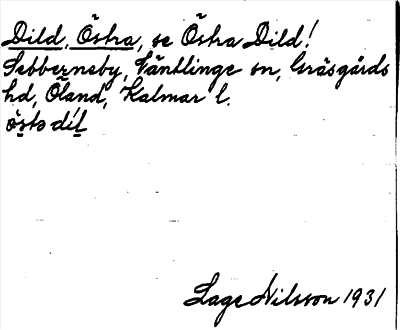 Dild, Östra, se Östra Dild!
Sebberneby, Ventlinge sn, Gräsgårds
hd, Öland, Kalmar l.
östə dil
Lage Nilsson 1931